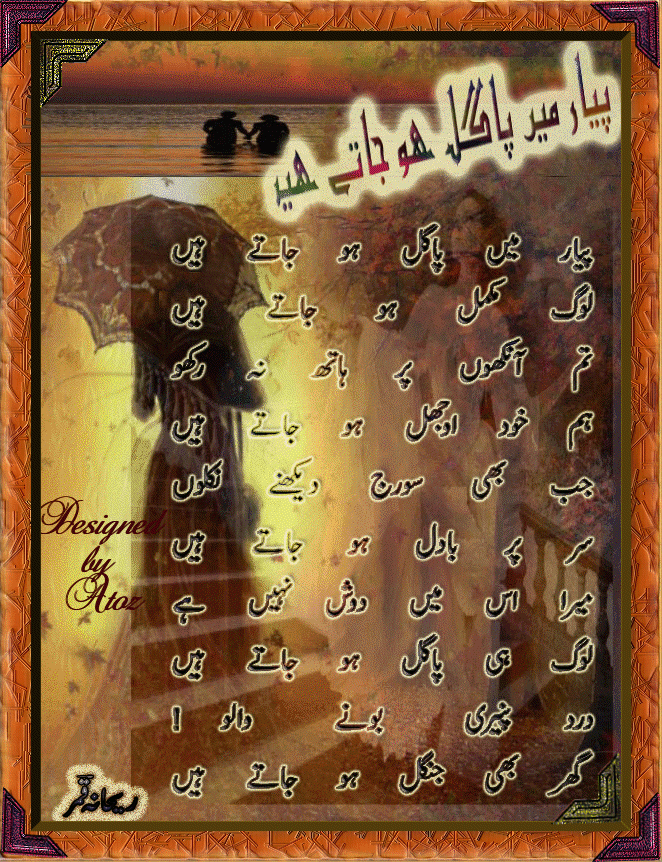 پیار میں پاگل ہو جاتے ہیں
پیار میں پاگل ہو جاتے ہیں
لوگ مکمل ہو جاتے ہیں
تم آنکھوں پر ہاتھ نہ رکھو
ہم خود اوجھل ہو جاتے ہیں
جب بھی سورج دیکھنے نکلوں
سر پر بادل ہو جاتے ہیں
میرا اس میں دوش نہیں ہے
لوگ ہی پاگل ہو جاتے ہیں
درد پنیری بونے والو !
گھر بھی جنگل ہو جاتے ہیں
ریحانہ قمر
Designed
by
Atoz